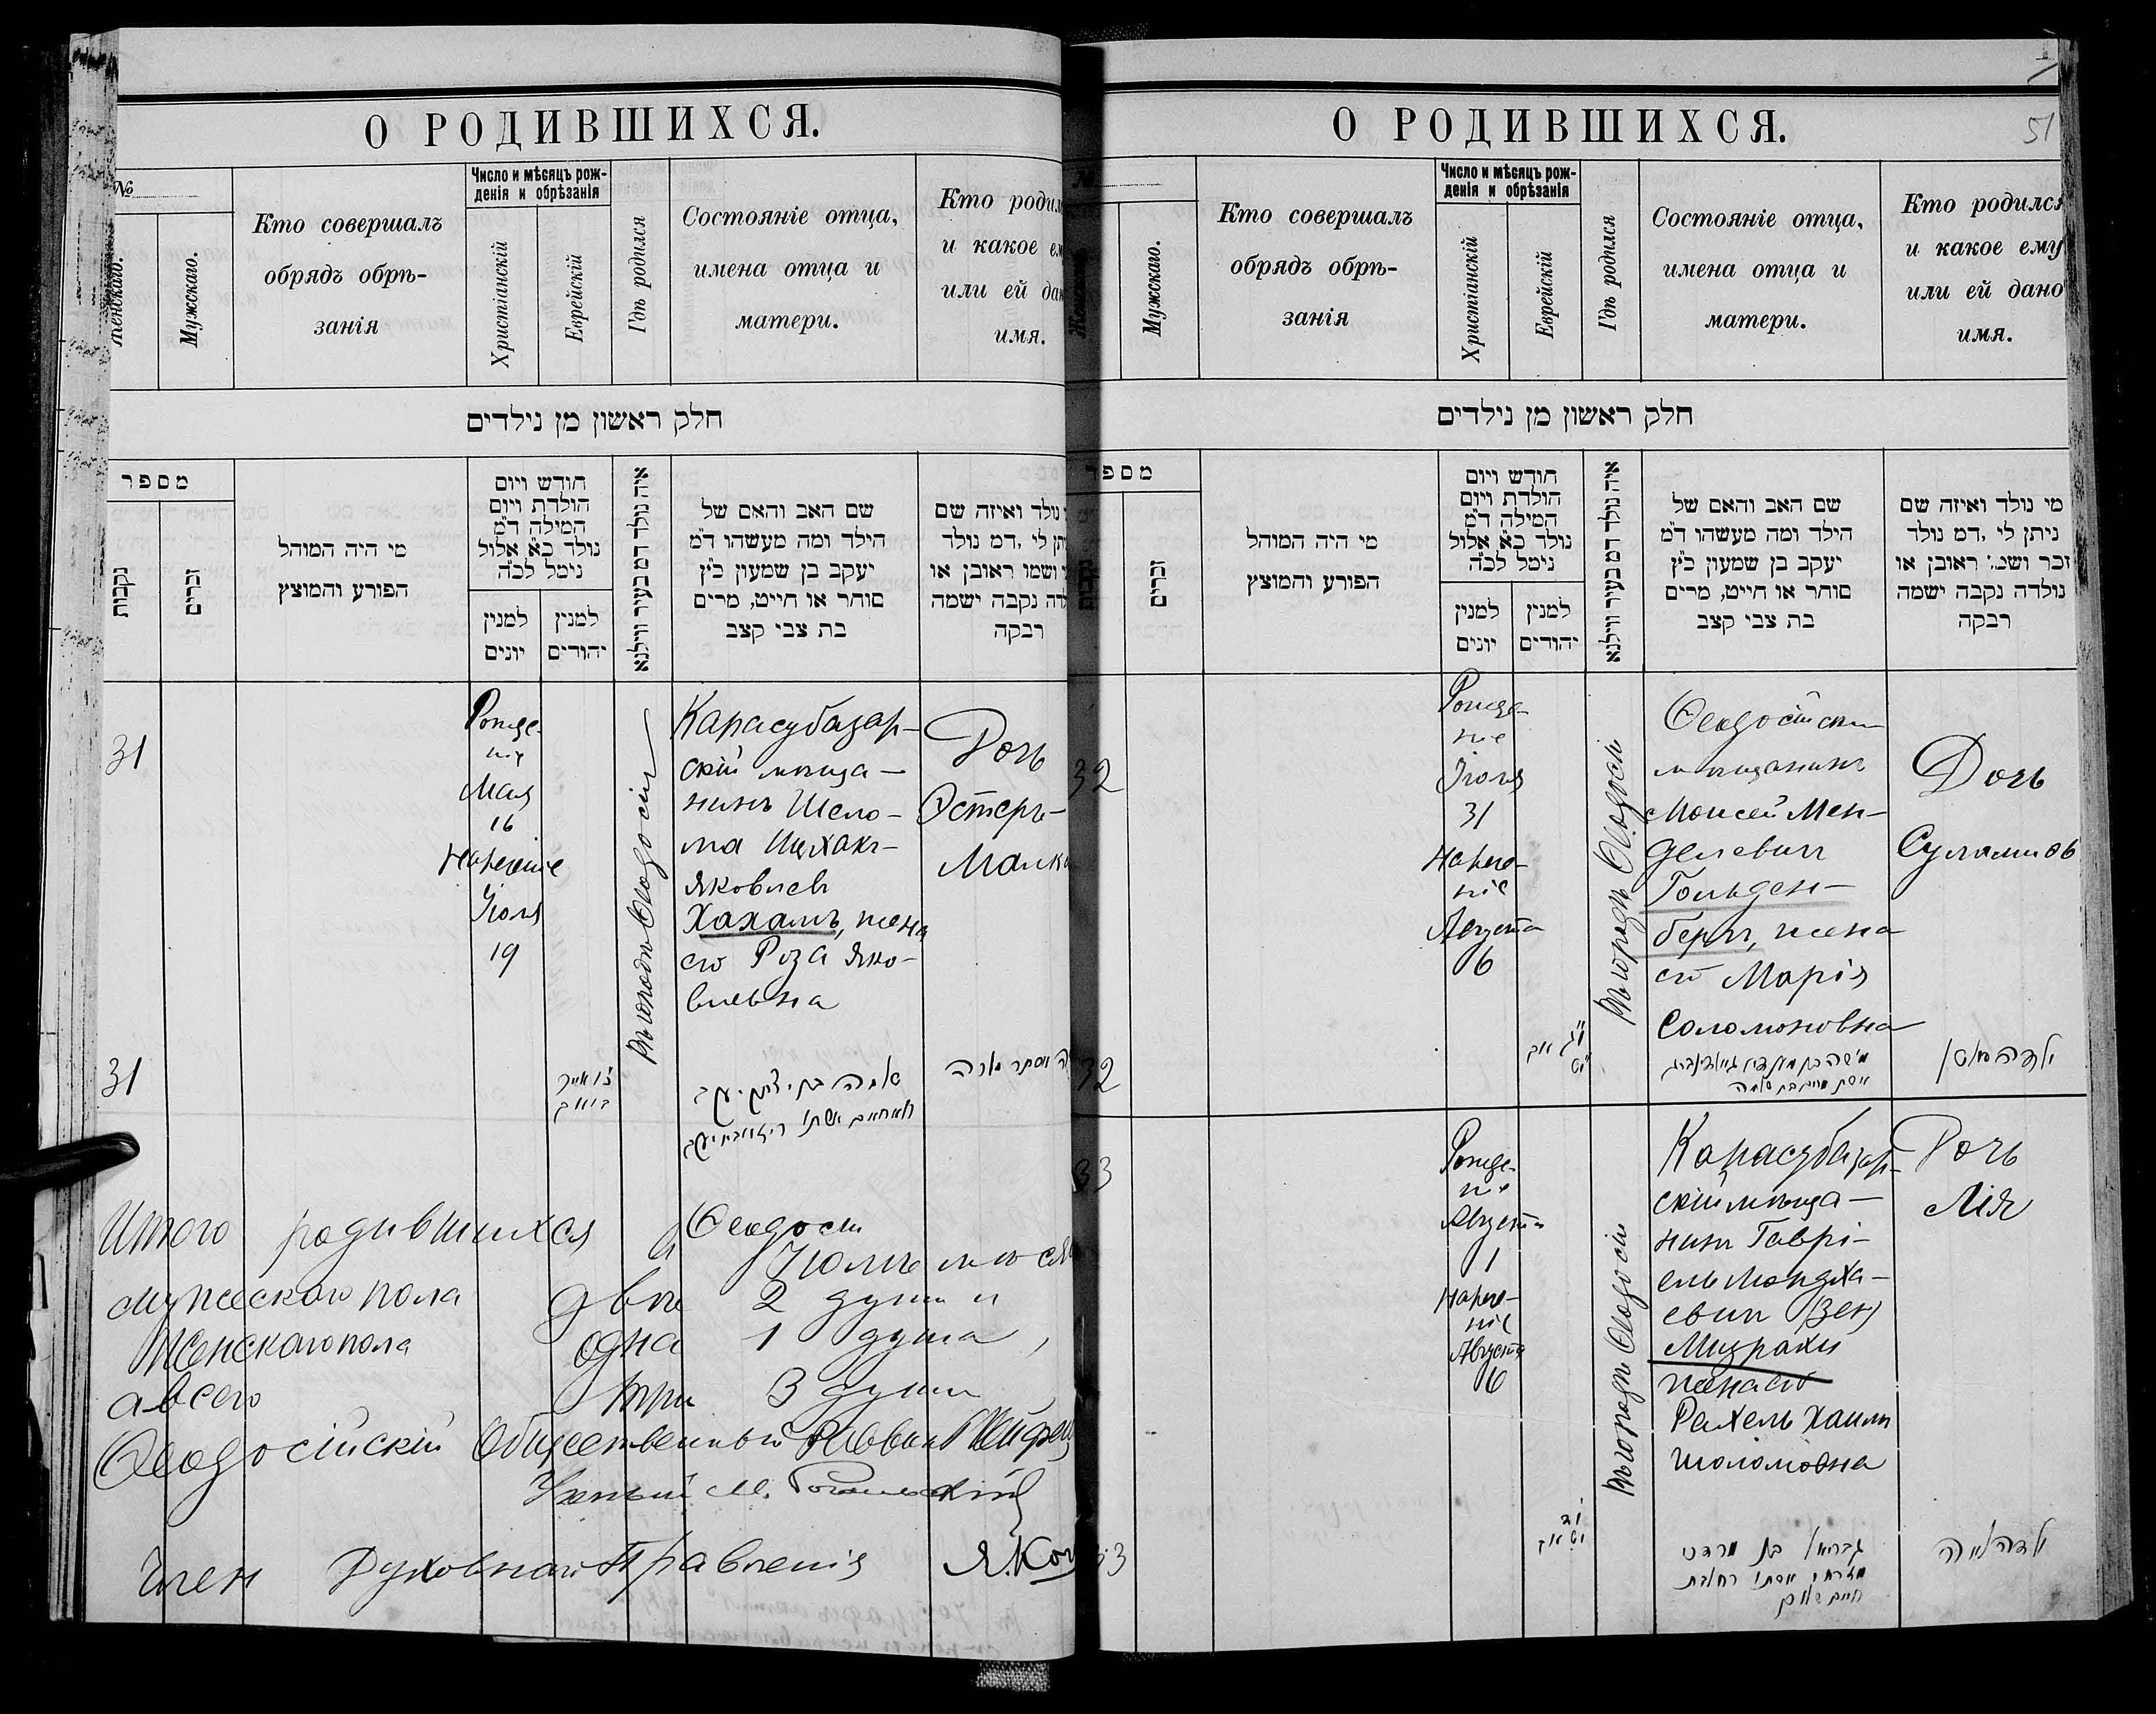 О РОДИВШИХСЯ.
№
Женскаго.
Мужскаго.
Кто совершалъ
обрядъ обрѣ-
занія
Число и мѣсяцъ рож-
денія и обрѣзанія
Христіанскій
Еврейскій
Гдѣ родился
Состояніе отца,
имена отца и
матери.
Кто родил
и какое ем
или ей дан
имя.
חלק ראשון מן נילדים
מספר
נקבות
זכרים
מי היה המוהל
הפורע והמוצץ
חודש ויום
הולדת ויום
המילה ד"מ
נולד כ"א אלול
נימל לכ"ה
למנין
יונים
למנין
יהודים
איה נולד דמ בעיר ווילנא
שם האב והאם של
הילד ומה מעשהו ד"מ
יעקב בן שמעון כ"ץ
סוחר או חייט, מרים
בת צבי קצב
נולד ואיזה שם
תן לי, דמ נולד
ושמו ראובן או
לדה נקבה ישמה
רבקה
31
Рожде-
ніе
Мая
16
Нареченіе
Іюля
19
Въ городѣ Ѳеодосіи
Карасубазар-
скій мѣща-
нинъ Шело-
ма Ицхакъ
Яковлевъ
Хахамъ, жена
его Роза Яко-
влевна
Дочь
Эстеръ-
Малка
31
שלמה בן יצחק יעקב
Итого родившихся въ Ѳеодосіи
Іюль мѣся
мужескаго пола двѣ 2 души и
Женскаго пола одна 1 душа,
а всего три 3 души
Ѳеодосійскій Общественный Раввинъ
Ученый М.
Членъ Духовнаго Правленія Я. Ког
О РОДИВШИХСЯ.
51
Женскаго
Мужскаго.
Кто совершалъ
обрядъ обрѣ-
занія
Число и мѣсяцъ рож-
денія и обрѣзанія
Христіанскій
Еврейскій
Гдѣ родился
Состояніе отца,
имена отца и
матери.
Кто родился
и какое ему
или ей дано
имя.
חלק ראשון מן נילדים
מספר
נקבות
זכרים
מי היה המוהל
הפורע והמוצץ
חודש ויום
הולדת ויום
המילה ד"מ
נולד כ"א אלול
נימל לכ"ה
למנין
יונים
למנין
יהודים
איה נולד דמ בעיר ווילנא
שם האב והאם של
הילד ומה מעשהו ד"מ
יעקב בן שמעון כ"ץ
סוחר או חייט, מרים
בת צבי קצב
מי נולד ואיזה שם
ניתן לי, דמ נולד
זכר ושמ' ראובן או
נולדה נקבה ישמה
רבקה
32
Рожде-
ніе
Іюля
31
Нарече-
ніе
Августа
6
Въ городѣ Ѳеодосіи
Ѳеодосійскій
мѣщанинъ
Моисей Мен-
делевичъ
Гольден-
бергъ, жена
его Марія
Соломоновна
Дочь
Суламиѳь
32
33
Рожде-
ніе
Августа
1
Нарече-
ніе
Августа
6
Въ городѣ Ѳеодосіи
Карасубазар-
скій мѣща-
нинъ Гаврі-
ель Мордха-
евичъ Бен
Мизрахи
жена его
Рахель Хаимъ
Шоломовна
Дочь
Лія
33
גבריאל בן מרדכי
מזרחי אשתו רחל בת
חיים שלום
ילדה לאה